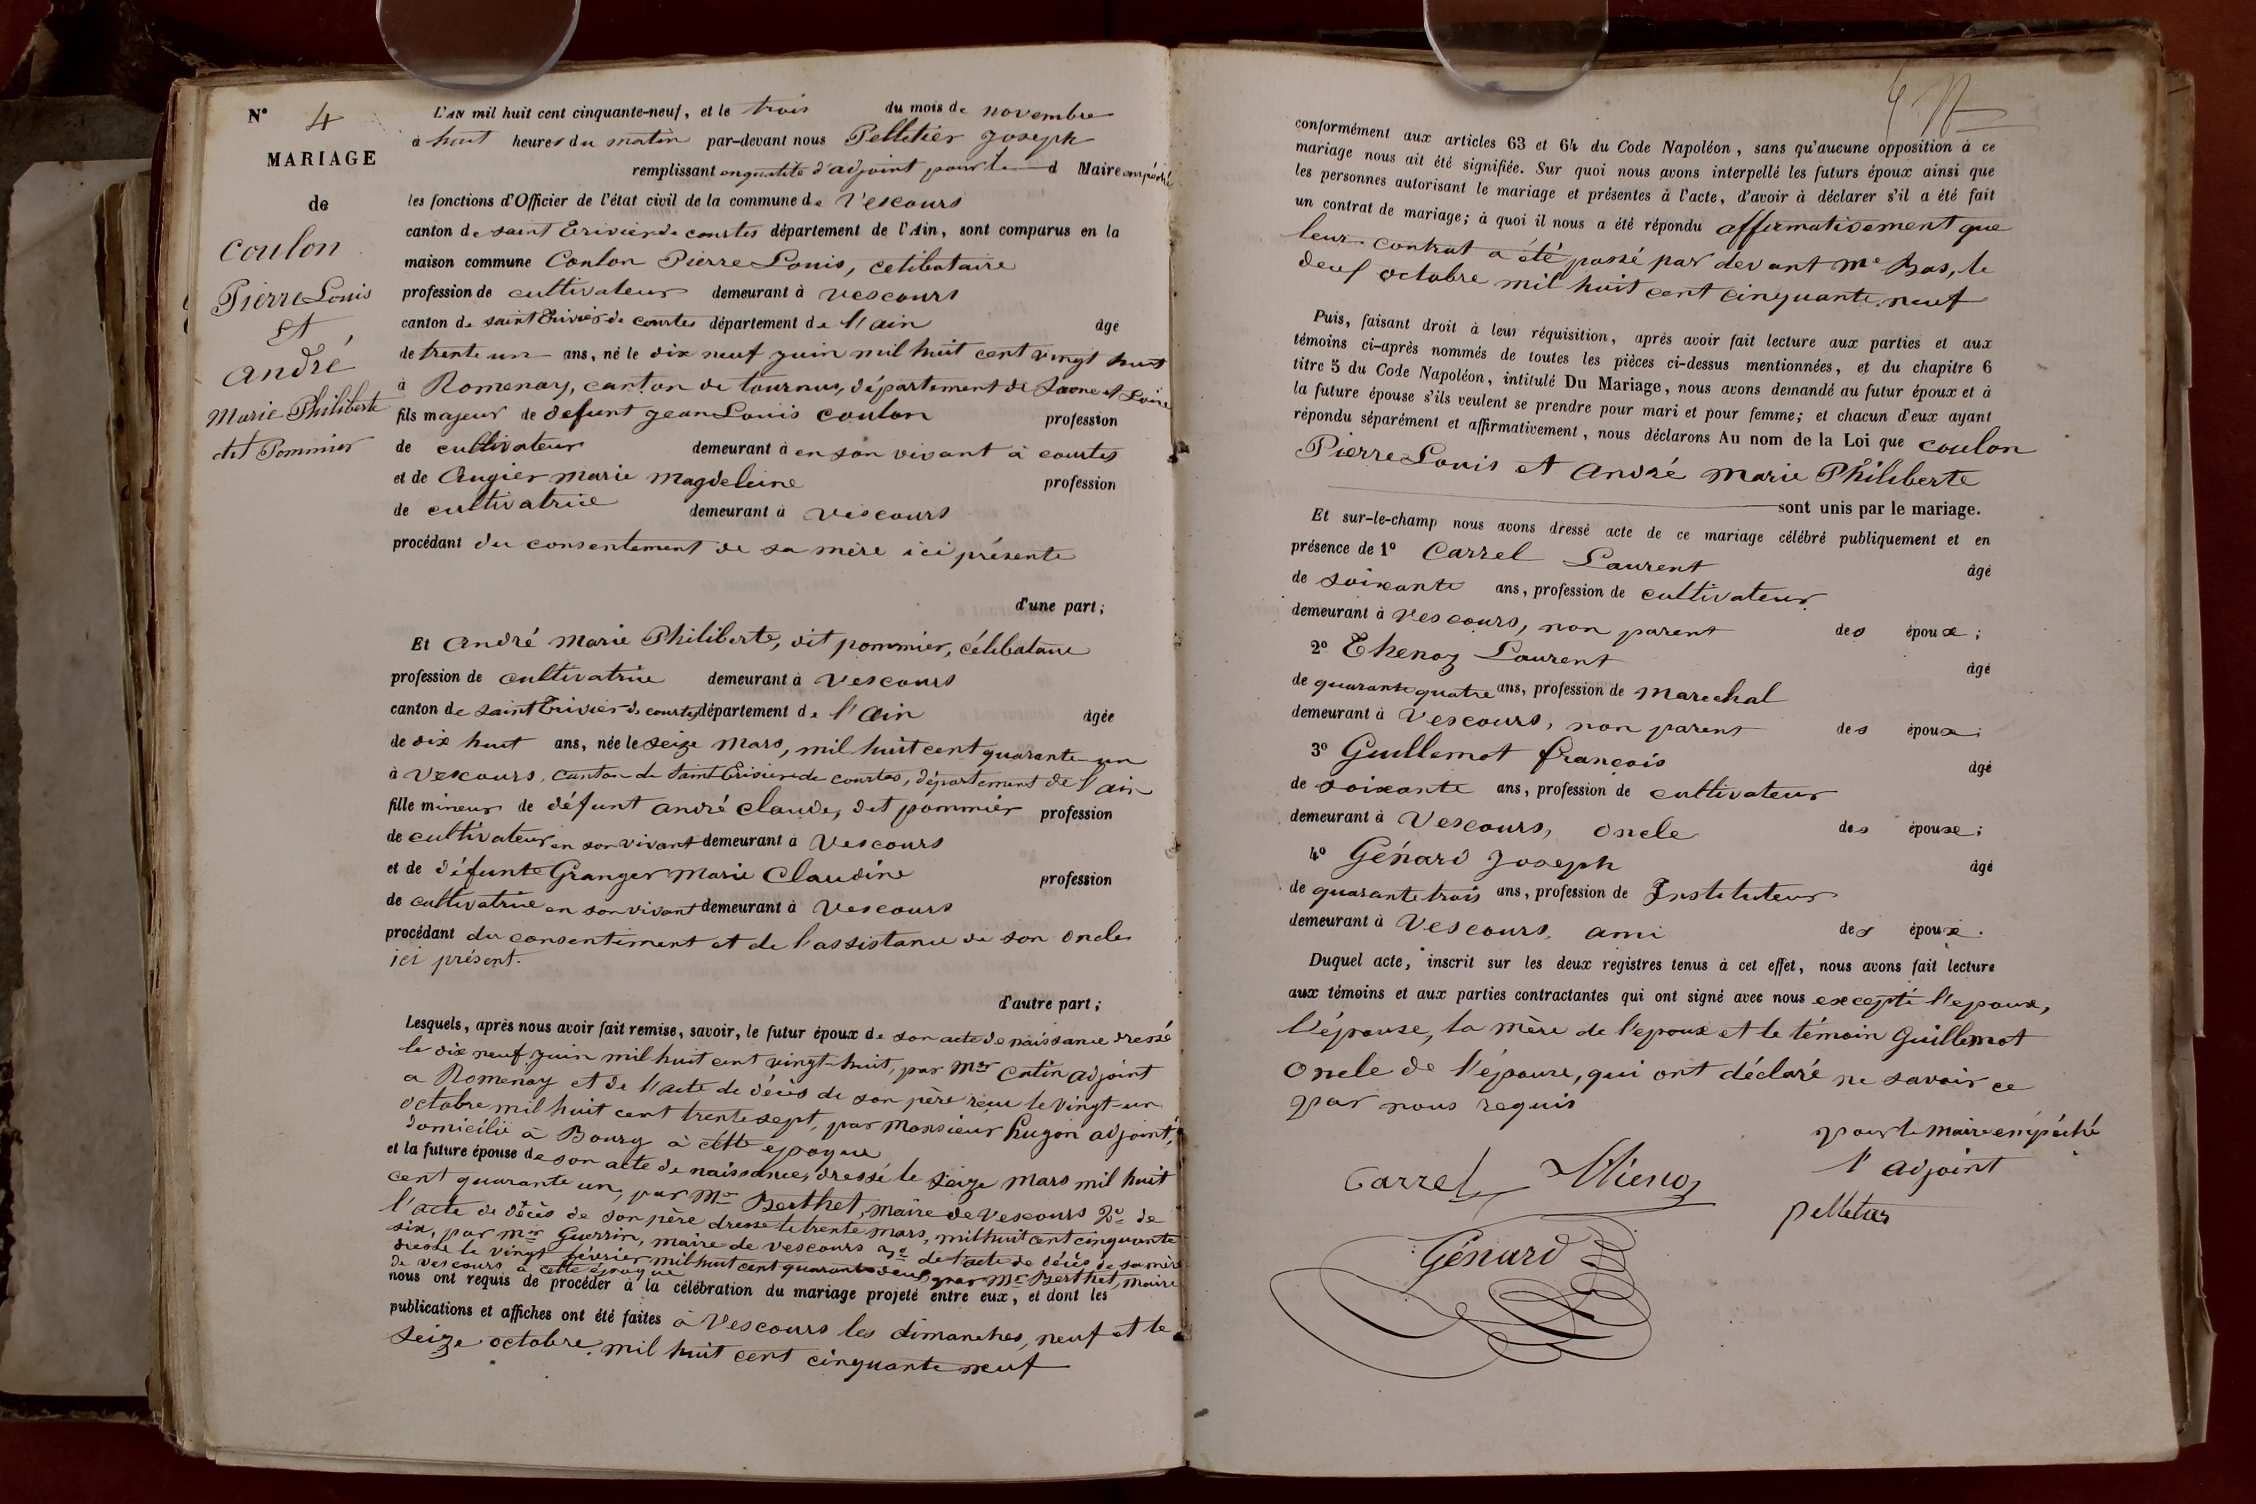 N° 4
MARIAGE
de
Coulon
Pierre Louis
et
André
Marie Philiberte
dit Pommier
L'AN mil huit cent cinquante-neuf, et le trois du mois de novembre
à huit heures du matin par-devant nous Pelletier Joseph
remplissant en qualité d'adjoint pour le d Maire empêché
les fonctions d'Officier de l'état civil de la commune de Vescours
canton de saint Trivier de courtes département de l'Ain, sont comparus en la
maison commune Coulon Pierre Louis, celibataire
profession de cultivateur demeurant à vescours
canton de saint Trivier de courtes département de l'ain âgé
de trente un ans, né le dix neuf juin mil huit cent vingt huit
à Romenay, canton de tournus, département de Saone et Loire
fils majeur de defunt Jean Louis coulon profession
de cultivateur demeurant à en son vivant à courtes
et de Augier marie magdeleine profession
de cultivatrice demeurant à vescours
procédant du consentement de sa mère ici présente
d'une part;
Et André Marie Philiberte, dit pommier, célibataire
profession de cultivatrice demeurant à vescours
canton de saint Trivier de courtes département de l'ain âgée
de dix huit ans, née le seize mars, mil huit cent quarante un
à Vescours, canton de Saint Trivier de courtes, département de l'ain
fille mineur de défunt andré claude, dit pommier profession
de cultivateur en son vivant demeurant à Vescours
et de défunte Granger Marie Claudine profession
de cultivatrice en son vivant demeurant à Vescours
procédant du consentement et de l'assistance de son oncle
ici présent.
d'autre part;
Lesquels, après nous avoir fait remise, savoir, le futur époux de son acte de naissance dressé
le dix neuf juin mil huit cent vingt-huit, par Mr Catin adjoint
a Romenay et de l'acte de décès de son père reçu le vingt-un
octobre mil huit cent trente sept, par Monsieur hugon adjoint,
domicilié à Bourg à cette epoque
et la future épouse de son acte de naissance, dressé le seize mars mil huit
cent quarante un, par Mr Berthet, maire de Vescours 2° de
l'acte de décès de son père dressé le trente mars, mil huit cent cinquante
six, par Mr Guerrin, maire de vescours 3° de l'acte de décès de sa mère
dressé le vingt février mil huit cent quarante deux par Mr Berthet, maire
de vescours à cette époque
nous ont requis de procéder à la célébration du mariage projeté entre eux, et dont les
publications et affiches ont été faites à Vescours les dimanches, neuf et le
seize octobre mil huit cent cinquante neuf
conformément aux articles 63 et 64 du Code Napoléon, sans qu'aucune opposition à ce
mariage nous ait été signifiée. Sur quoi nous avons interpellé les futurs époux ainsi que
les personnes autorisant le mariage et présentes à l'acte, d'avoir à déclarer s'il a été fait
un contrat de mariage; à quoi il nous a été répondu affirmativement que
leur contrat a été passé par devant Me Bas, le
deux octobre mil huit cent cinquante neuf
Puis, faisant droit à leur réquisition, après avoir fait lecture aux parties et aux
témoins ci-après nommés de toutes les pièces ci-dessus mentionnées, et du chapitre 6
titre 5 du Code Napoléon, intitulé Du Mariage, nous avons demandé au futur époux et à
la future épouse s'ils veulent se prendre pour mari et pour femme; et chacun d'eux ayant
répondu séparément et affirmativement, nous déclarons Au nom de la Loi que coulon
Pierre Louis et André Marie Philiberte
sont unis par le mariage.
Et sur-le-champ nous avons dressé acte de ce mariage célébré publiquement et en
présence de 1° Carrel Laurent âgé
de soixante ans, profession de cultivateur
demeurant à Vescours, non parent des époux;
2° Thenoz Laurent âgé
de quarante quatre ans, profession de marechal
demeurant à Vescours, non parent des époux;
3° Guillemot françois âgé
de soixante ans, profession de cultivateur
demeurant à Vescours, oncle des épouse;
4° Génard Joseph âgé
de quarante trois ans, profession de Instituteur
demeurant à Vescours, ami des époux.
Duquel acte, inscrit sur les deux registres tenus à cet effet, nous avons fait lecture
aux témoins et aux parties contractantes qui ont signé avec nous excepté l'epoux,
l'épouse, la mère de l'epoux et le témoin Guillemot
oncle de l'épouse, qui ont déclaré ne savoir ce
par nous requis
pour le maire empêché
l'adjoint
Carrel Thenoz
pelletier
Génard